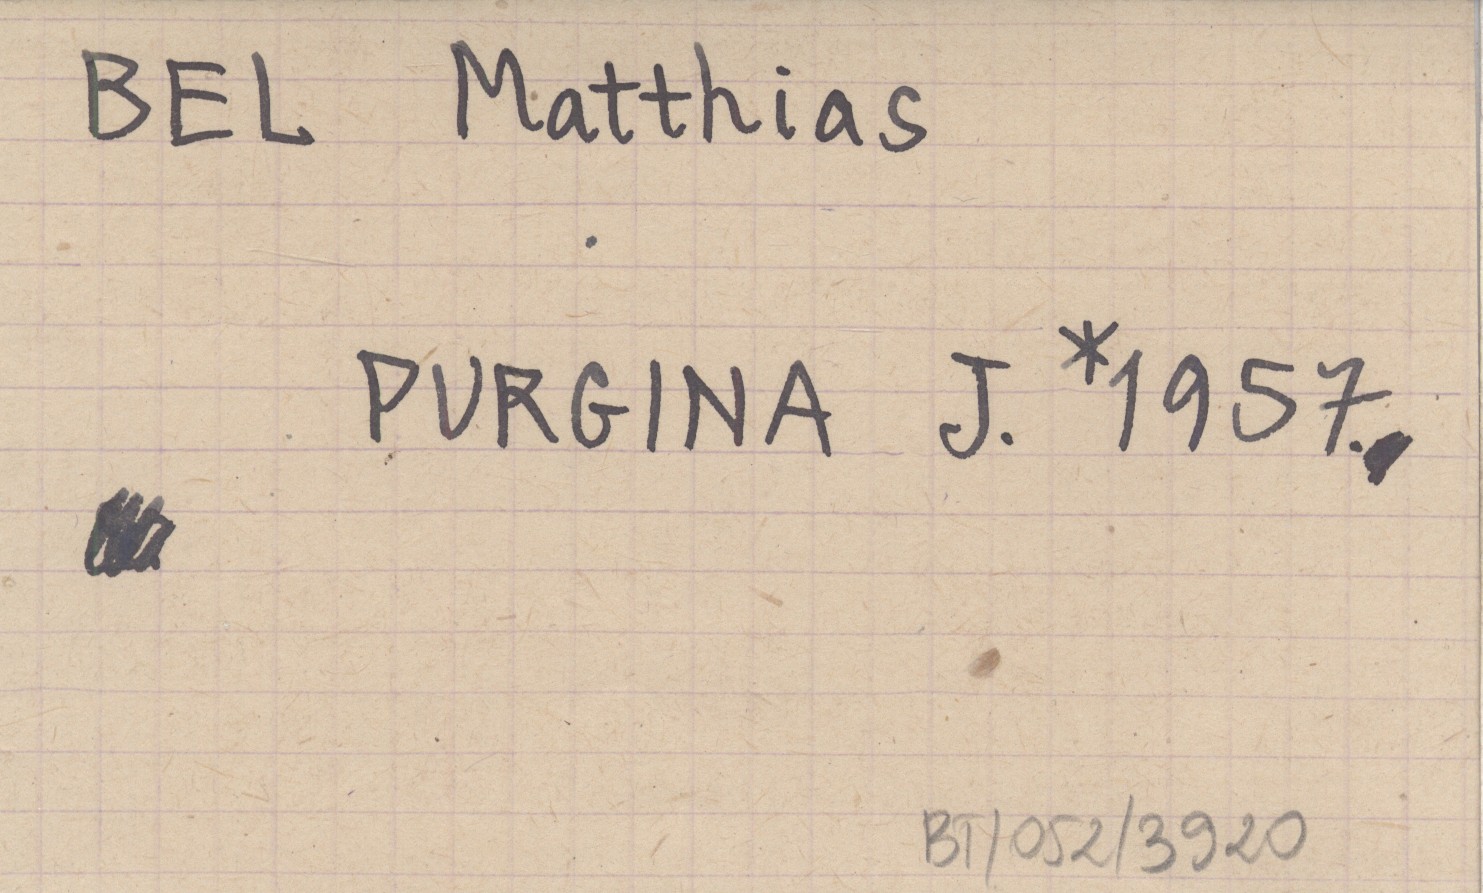 BEL Matthias
PURGINA J. *1957.
BT/052/3920